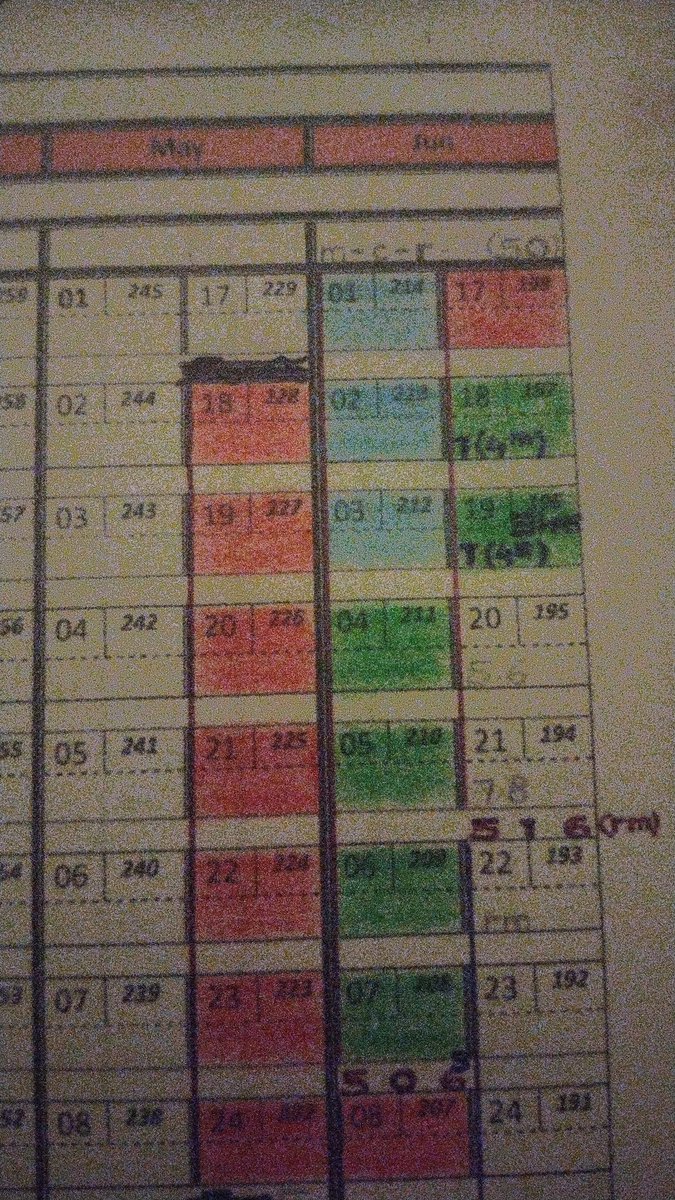 May Jun
m-c-r (50)
259 01 245 17 229 01 214 17 198
58 02 244 18 228 02 213 18 197
T(4m)
57 03 243 19 227 03 212 19
56 04 242 20 226 04 211 20 195
5.6
55 05 241 21 225 05 210 21 194
7.8
5 1 6 (rm)
54 06 240 22 224 06 209 22 193
rm
53 07 239 23 223 07 208 23 192
5 0 6
52 08 238 24 222 08 207 24 191